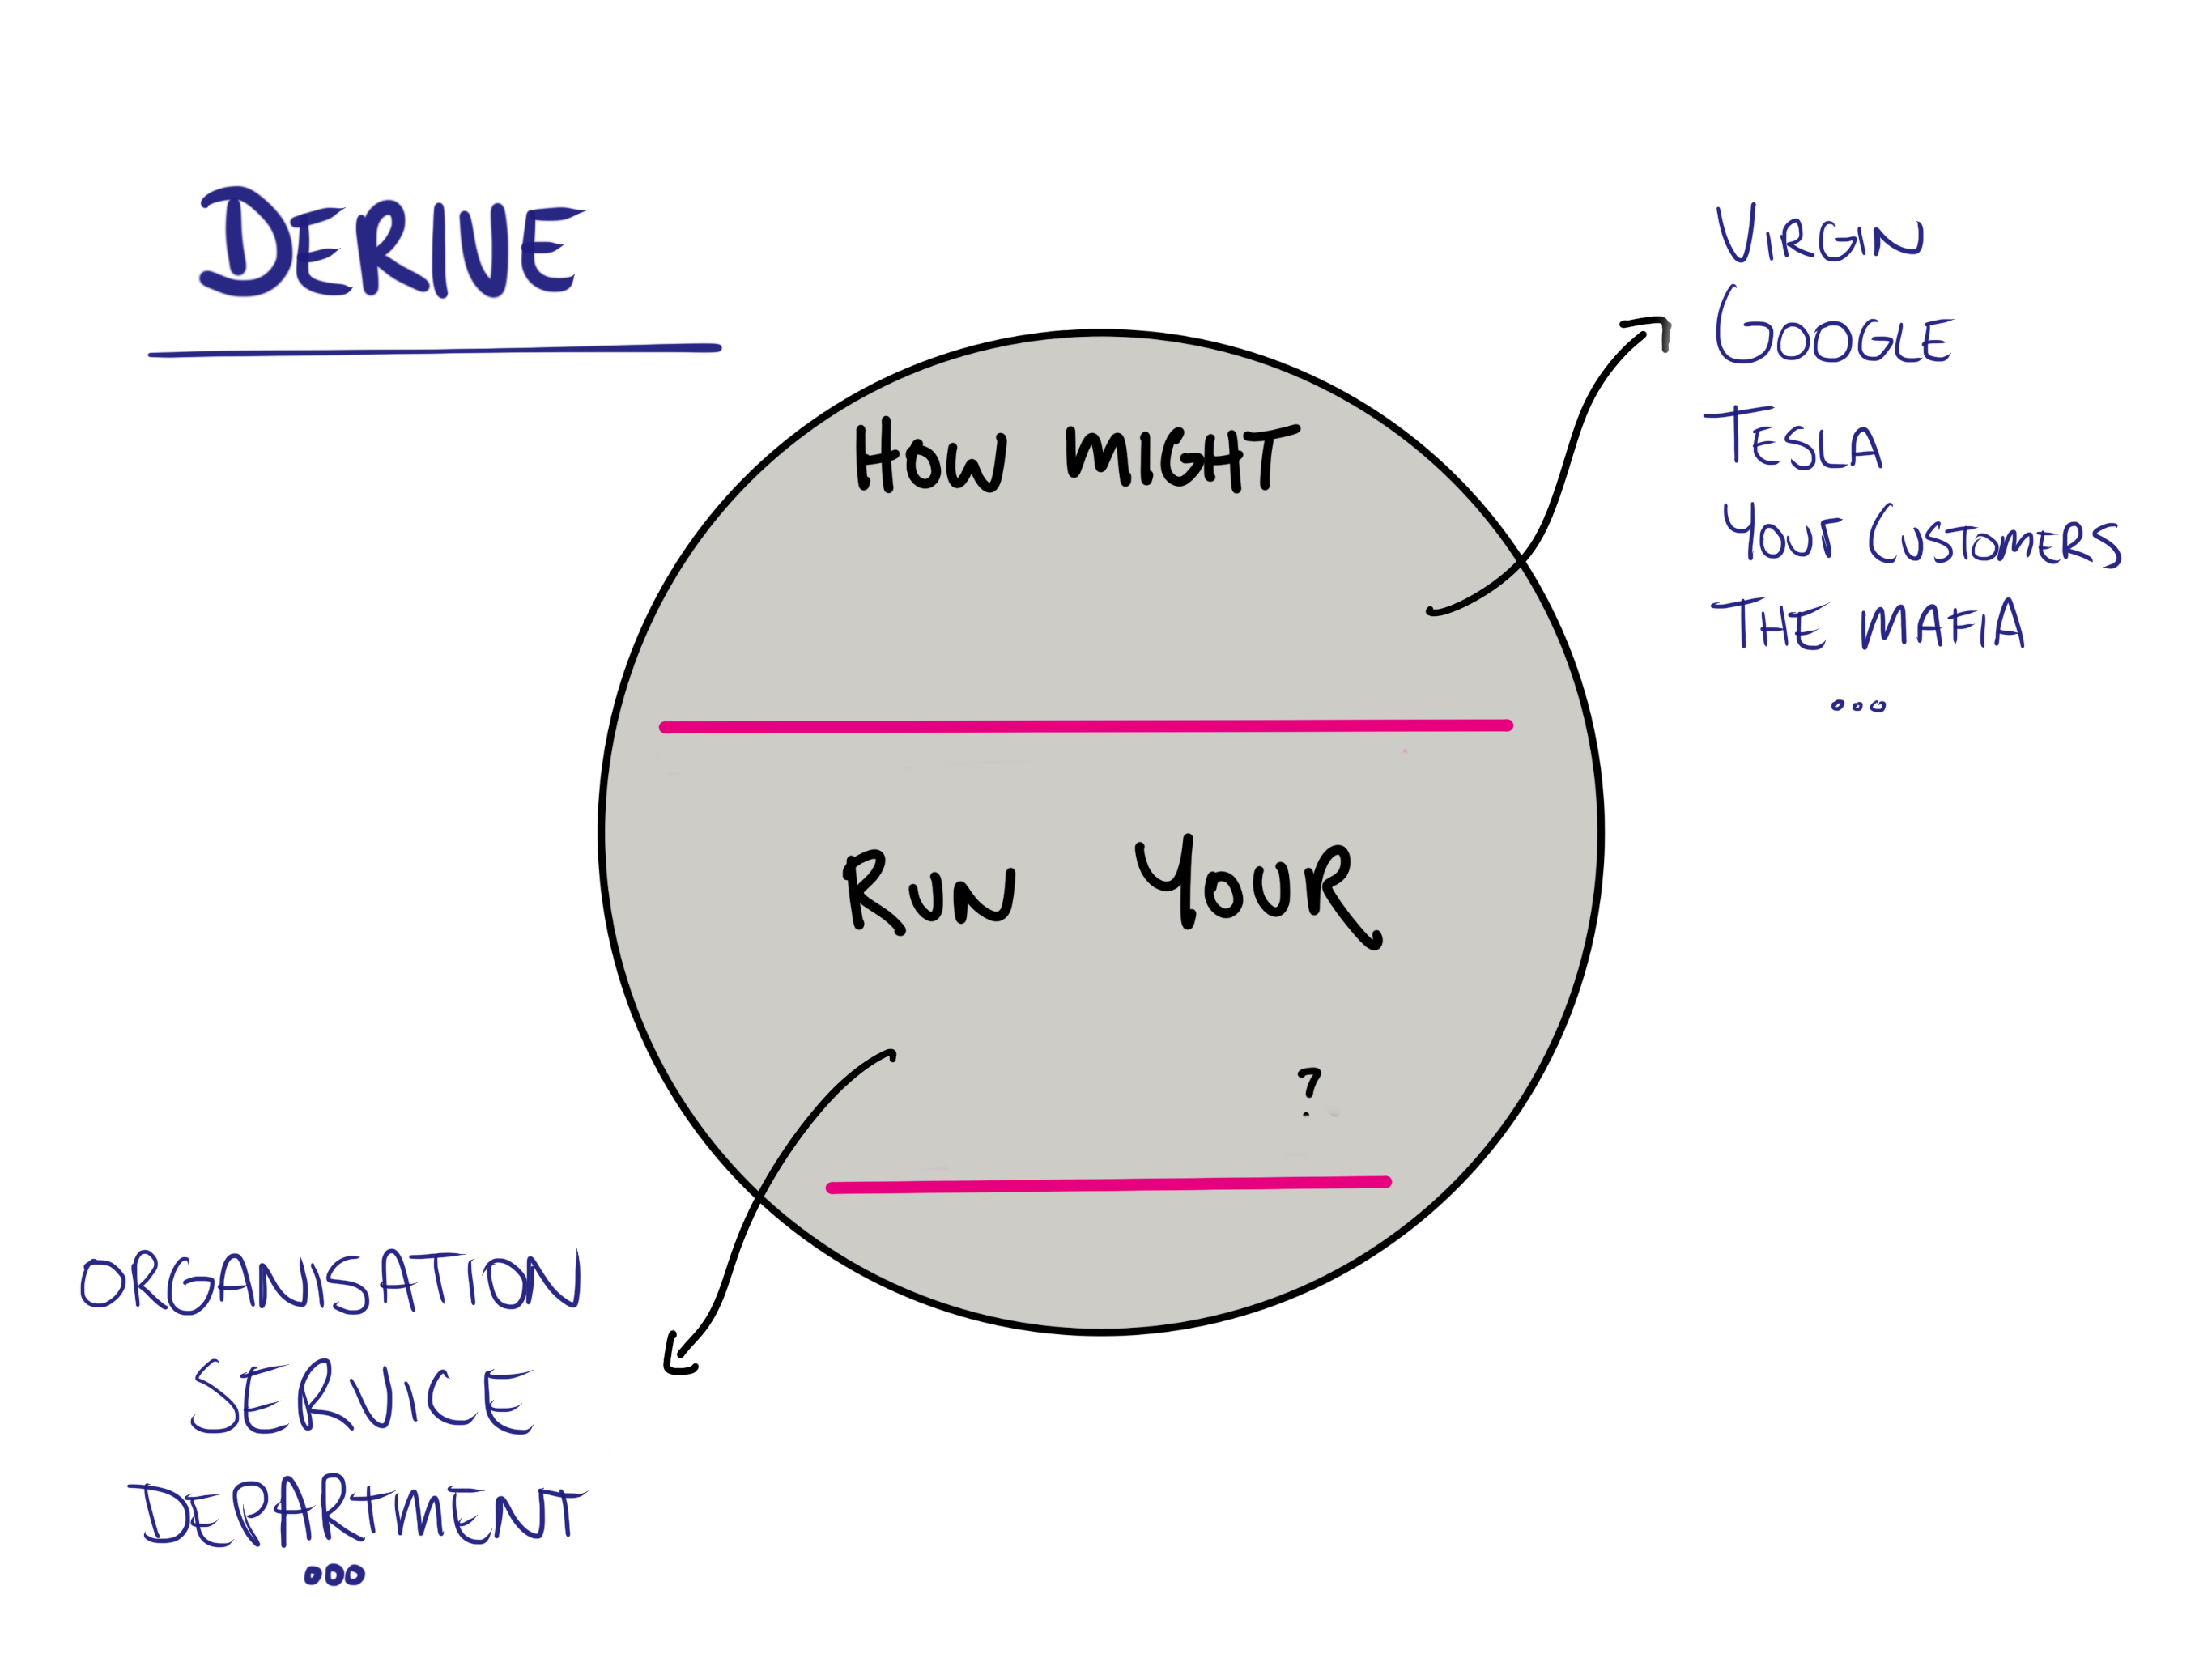 DERIVE
HOW MIGHT
RUN YOUR
?
VIRGIN
GOOGLE
TESLA
YOUR CUSTOMERS
THE MAFIA
...
ORGANISATION
SERVICE
DEPARTMENT
...